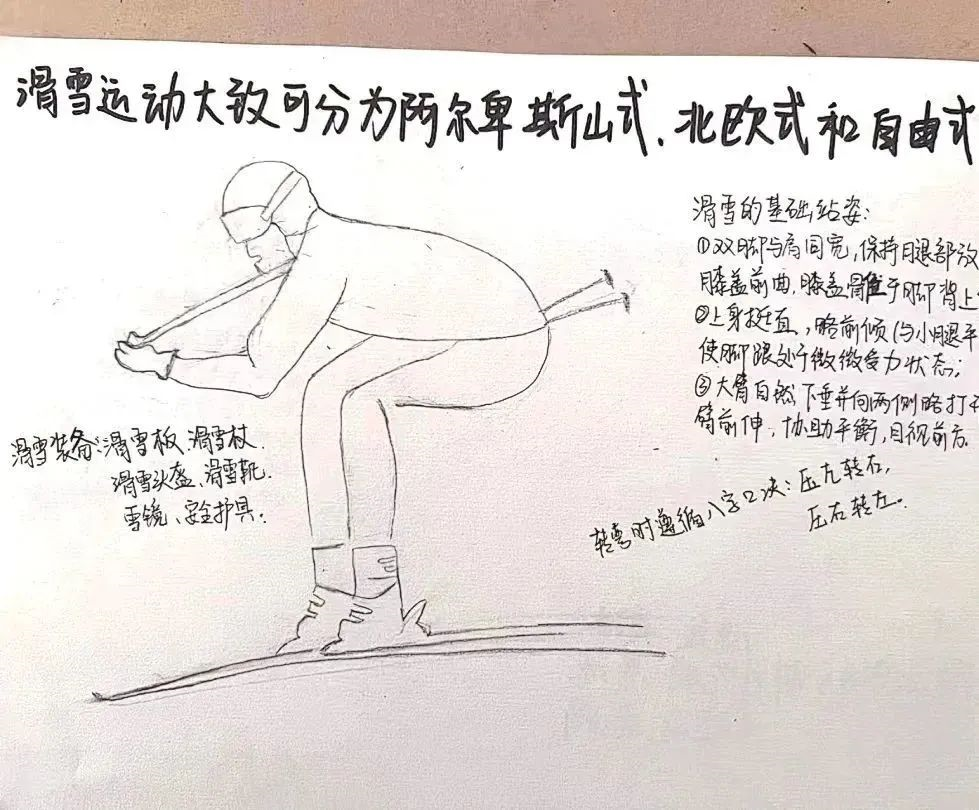 滑雪运动大致可分为阿尔卑斯山式、北欧式和自由式
滑雪的基础站姿:
①双脚与肩同宽,保持腿部放
膝盖前曲,膝盖骨位于脚背上
②上身挺直,略前倾(与小腿平
使脚跟处于微微受力状态;
③大臂自然下垂并向两侧略打开
臂前伸,协助平衡,目视前方
滑雪装备:滑雪板、滑雪杖、
滑雪头盔、滑雪靴、
雪镜、安全护具.
转弯时遵循八字口决:压左转右,
压右转左.